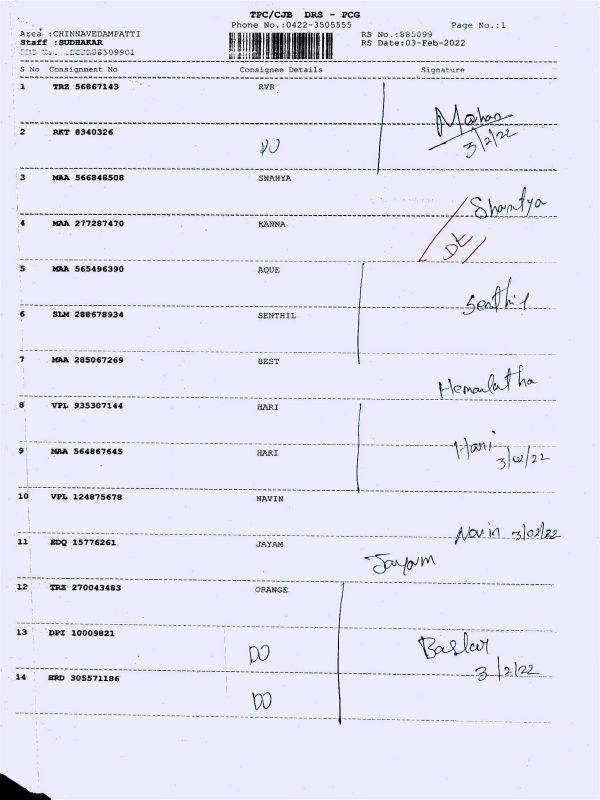 TPC/CJB DRS - PCG
Phone No.:0422-3505555 Page No.:1
Area :CHINNAVEDAMPATTI RS No.:885099
Staff :SUDHAKAR RS Date:03-Feb-2022
S No Consignment No Consignee Details Signature
1 TRZ 56867143 RVR
Mohan
2 RKT 8340326
DO 3/2/22
3 MAA 566848508 SNAHYA
Shantya
4 MAA 277287470 KANNA
5 MAA 565496390 AQUE
Senthil
6 SLM 288678934 SENTHIL
7 MAA 285067269 BEST
Hemalatha
8 VPL 935307144 HARI
Hari
9 MAA 564867645 HARI 3/02/22
10 VPL 124875678 NAVIN
Navin 3/02/22
11 EDQ 15776261 JAYAM
Jayam
12 TRZ 270043483 ORANGE
13 DPI 10009821
DO Baskar
3/2/22
14 ERD 305571186
DO